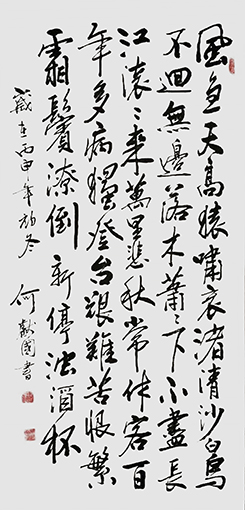 風急天高猿嘯哀渚清沙白鳥
飛迴無邊落木蕭〻下不盡長
江滾〻來萬里悲秋常作客百
年多病獨登台艱難苦恨繁
霜鬢潦倒新停濁酒杯
歲在丙申年初冬 何獻國書